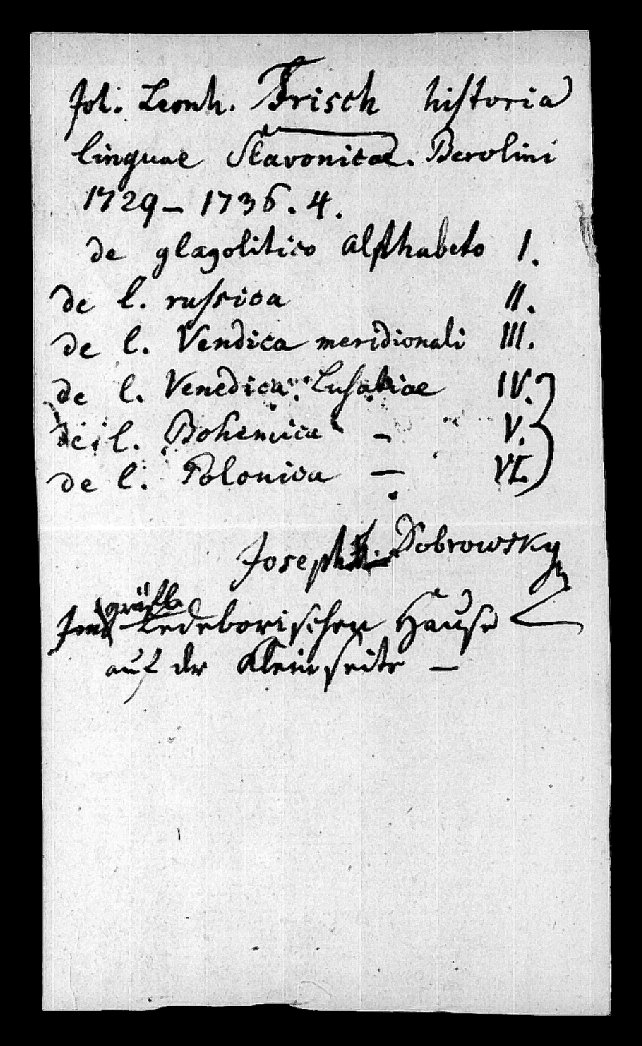 Joh. Leonh. Frisch historia
linguae Slavonicae. Berolini
1729 – 1736. 4.
de glagolitico Alphabeto I.
de l. russica II.
de l. Vendica meridionali III.
de l. Venedica Lusatiae IV.
de l. Bohemica – V.
de l. Polonica – VI.
Joseph Dobrowsky
gräfl.
Im Ledeborischen Hause
auf der Kleinseite –